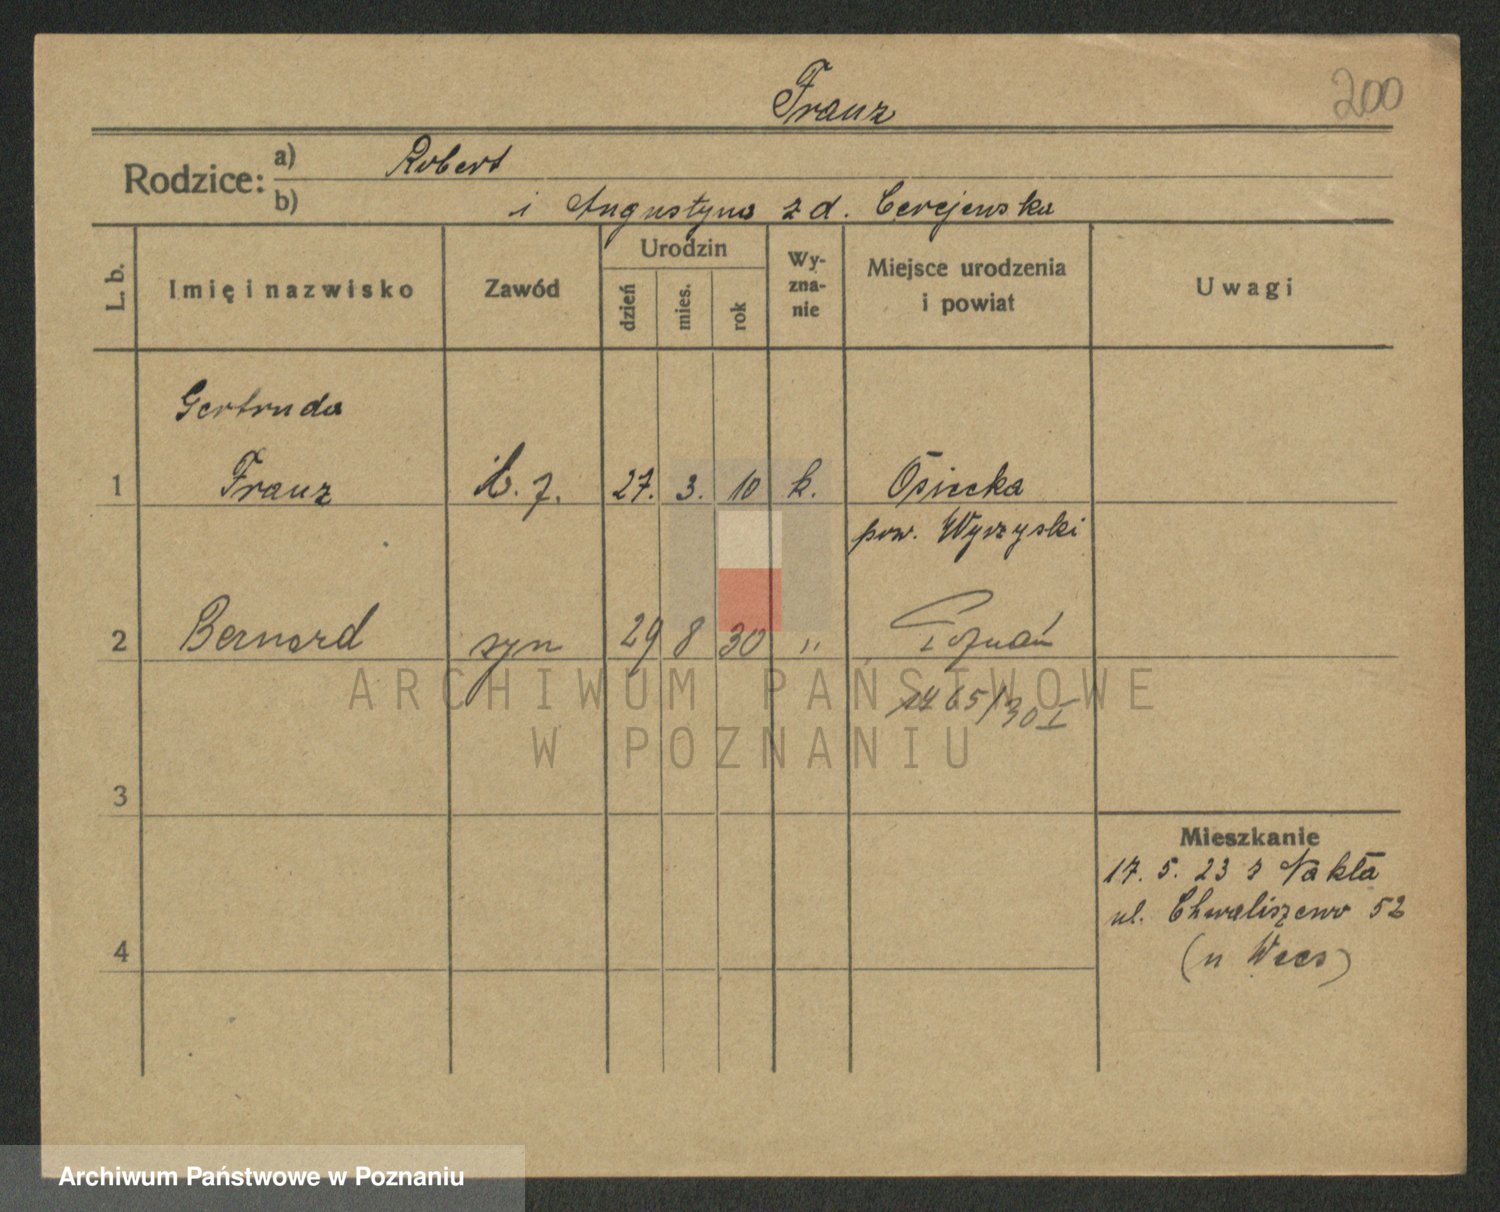 Franz
200
Rodzice: a) Robert
b) i Augustyna z d. Cerejewska
L. b. Imię i nazwisko Zawód Urodzin dzień mies. rok Wyznanie Miejsce urodzenia i powiat Uwagi
Gertruda
1 Franz 27. 3. 10 k. Osiecka
pow. Wyrzyski
2 Bernard syn 29 8 30 " Poznań
1765/30 I
3
Mieszkanie
17. 5. 23 z Nakła
ul. Chwaliszewo 52
4
(u Wees)
ARCHIWUM PAŃSTWOWE
W POZNANIU
Archiwum Państwowe w Poznaniu